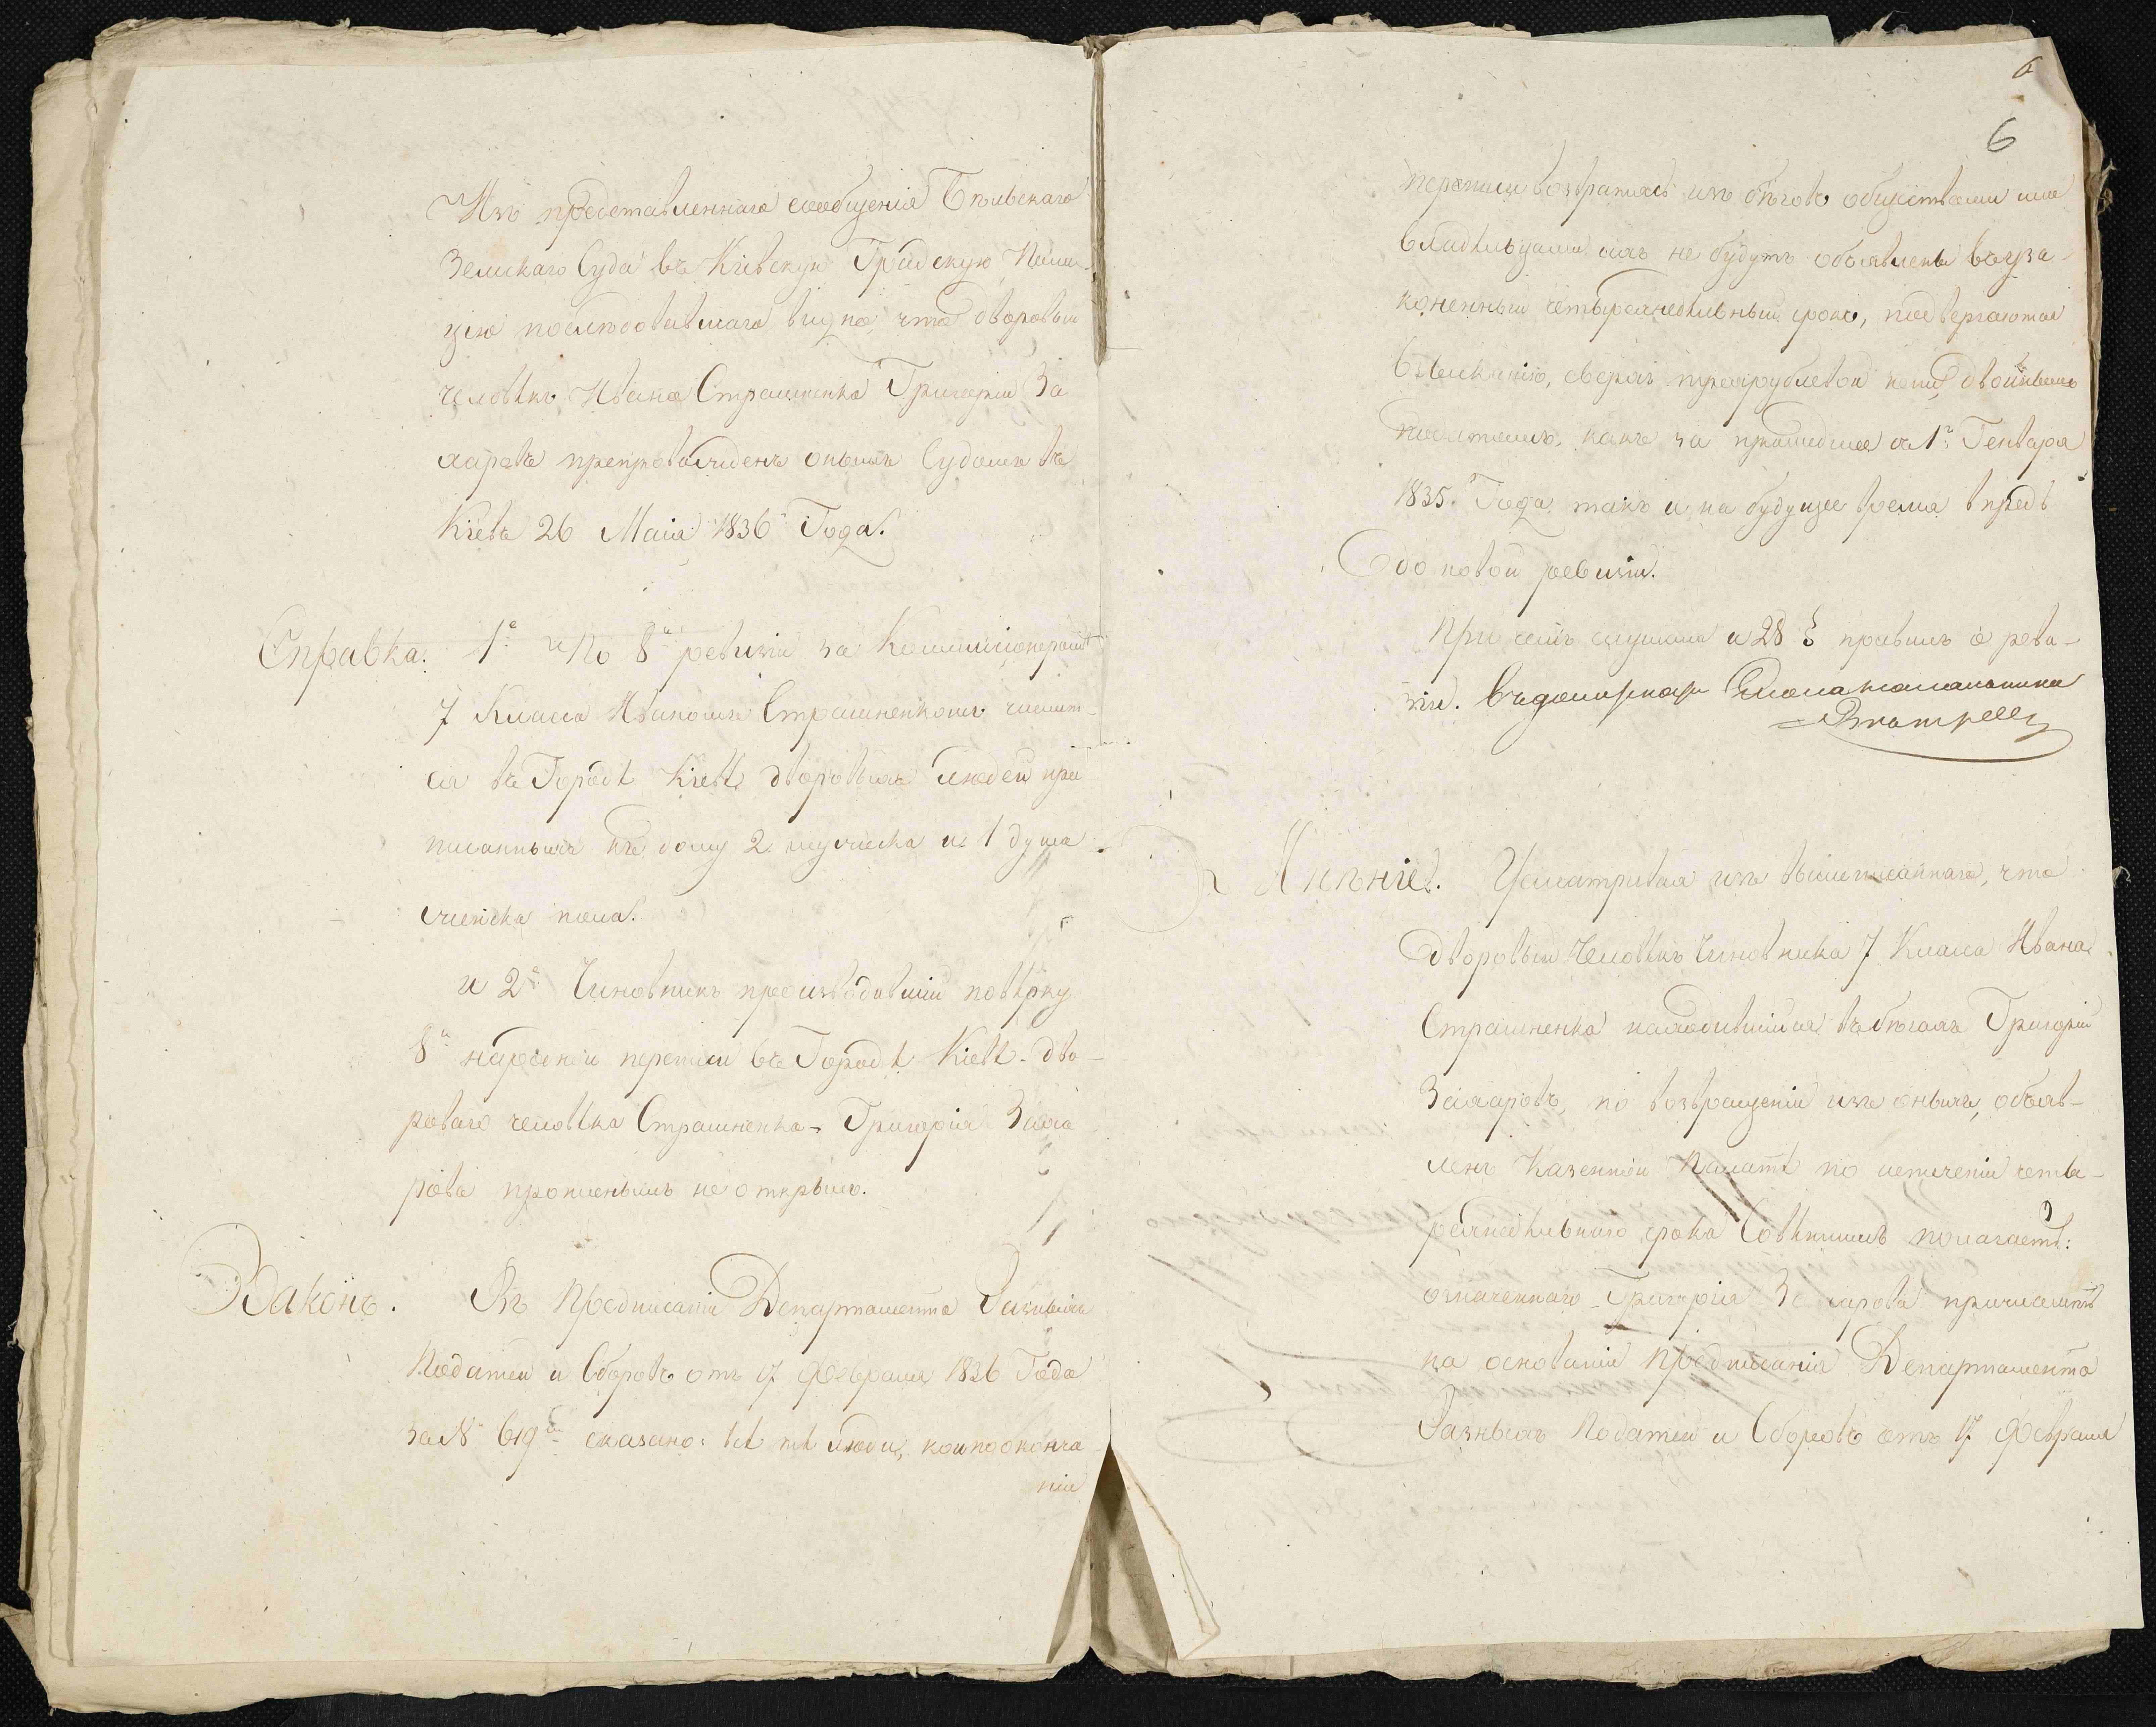 Изъ представленнаго сообщенія Бѣльскаго
Земскаго Суда въ Кіевскую Градскую Поли-
цію послѣдовавшаго видно, что дворовый
человѣкъ Ивана Страшненка Григорій За
харовъ препровожденъ онымъ Судомъ въ
Кіевъ 26 Маія 1836 Года.
Справка. 1е По 8й ревизіи за Коммисіонеромъ
7 Класса Иваномъ Страшненкомъ числит-
ся въ Городѣ Кіевѣ дворовыхъ людей при
писанныхъ къ дому 2 мужеска и 1 душа
женска пола.
и 2е Чиновникъ производившій повѣрку
8й народной переписи въ Городѣ Кіевѣ дво-
роваго человѣка Страшненка Григорія Заха
рова прописнымъ не открылъ.
Законъ. Въ Предписаніи Департамента Разныхъ
Податей и Сборовъ отъ 17 Февраля 1836 Года
за № 619 сказано: всѣ тѣ люди, кои по оконча
ніи
6
6
переписи возвратясь изъ бѣговъ обществами или
владѣльцами ихъ не будутъ объявлены въ уза-
коненный четырехнедѣльный срокъ, подвергаются
взысканію, сверхъ трехрублевой пени, двойнымъ
податемъ, какъ за прошедшее съ 1го Генваря
1835 Года такъ и на будущее время впредь
до новой ревизіи.
При чемъ слушали и 28 § правилъ о реви-
зіи.
Мнѣніе. Усматривая изъ вышеписаннаго, что
Дворовый Человѣкъ Чиновника 7 Класса Ивана
Страшненка находившійся въ бѣгахъ Григорій
Захаровъ, по возвращеніи изъ оныхъ, объяв-
ленъ Казенной Палатѣ по истеченіи четы-
рехнедѣльнаго срока Совѣтникъ полагаетъ:
означеннаго Григорія Захарова причислить
на основаніи Предписанія Департамента
Разныхъ Податей и Сборовъ отъ 17 Февраля